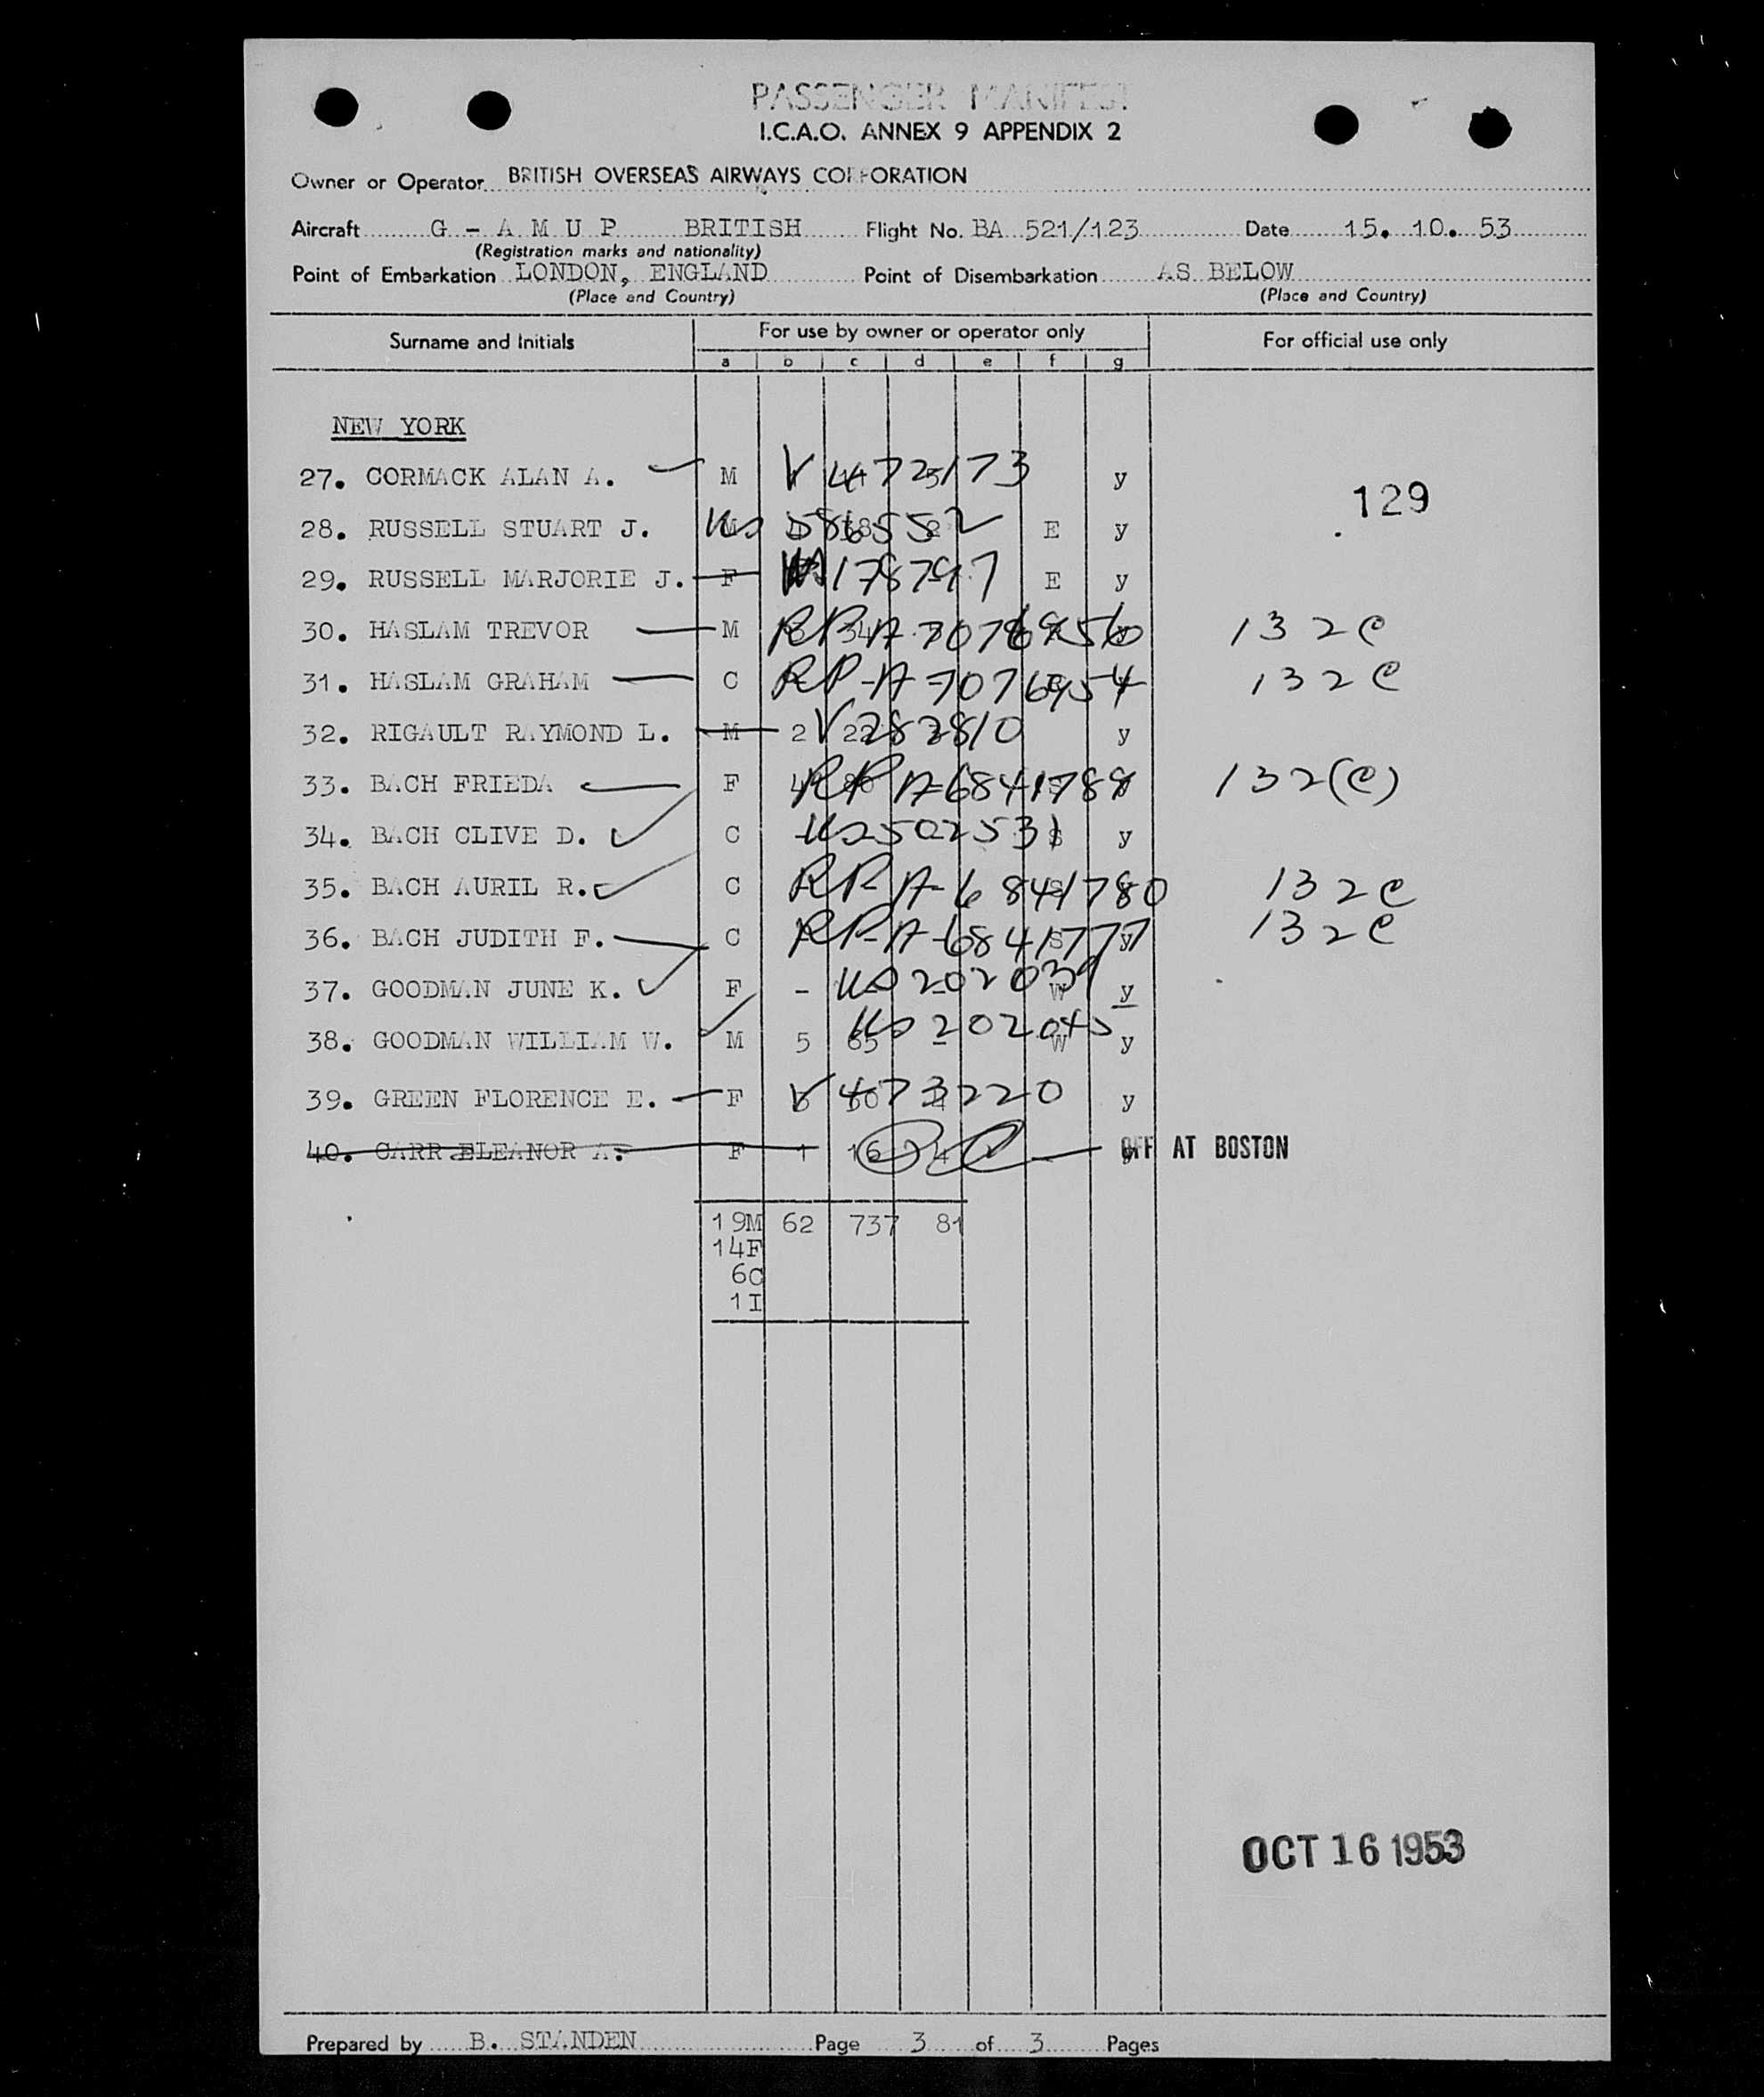 PASSENGER MANIFEST
I.C.A.O. ANNEX 9 APPENDIX 2
Owner or Operator BRITISH OVERSEAS AIRWAYS CORPORATION
Aircraft G - A M U P BRITISH Flight No. BA 521/123 Date 15. 10. 53
(Registration marks and nationality)
Point of Embarkation LONDON, ENGLAND Point of Disembarkation AS BELOW
(Place and Country) (Place and Country)
Surname and Initials For use by owner or operator only For official use only
a b c d e f g
NEW YORK
27. CORMACK ALAN A. M V 4725173 y
129
28. RUSSELL STUART J. M US 586552 E y
29. RUSSELL MARJORIE J. F 178797 E y
30. HASLAM TREVOR M RP-A-7076956 132C
31. HASLAM GRAHAM C RP-A-7076954 132C
32. RIGAULT RAYMOND L. M 2 V282810 y
33. BACH FRIEDA F RP A-6841788 132(C)
34. BACH CLIVE D. C US 502531 S y
35. BACH AURIL R. C RP-A-6841780 132C
36. BACH JUDITH F. C RP-A-6841777 132C
37. GOODMAN JUNE K. F - US 202039 W y
38. GOODMAN WILLIAM W. M 5 65 US 202040 - W y
39. GREEN FLORENCE E. F V 473220 y
40. CARR ELEANOR A. F 1 16 4 OFF AT BOSTON
19M 62 737 81
14F
6C
1I
OCT 16 1953
Prepared by B. STANDEN Page 3 of 3 Pages